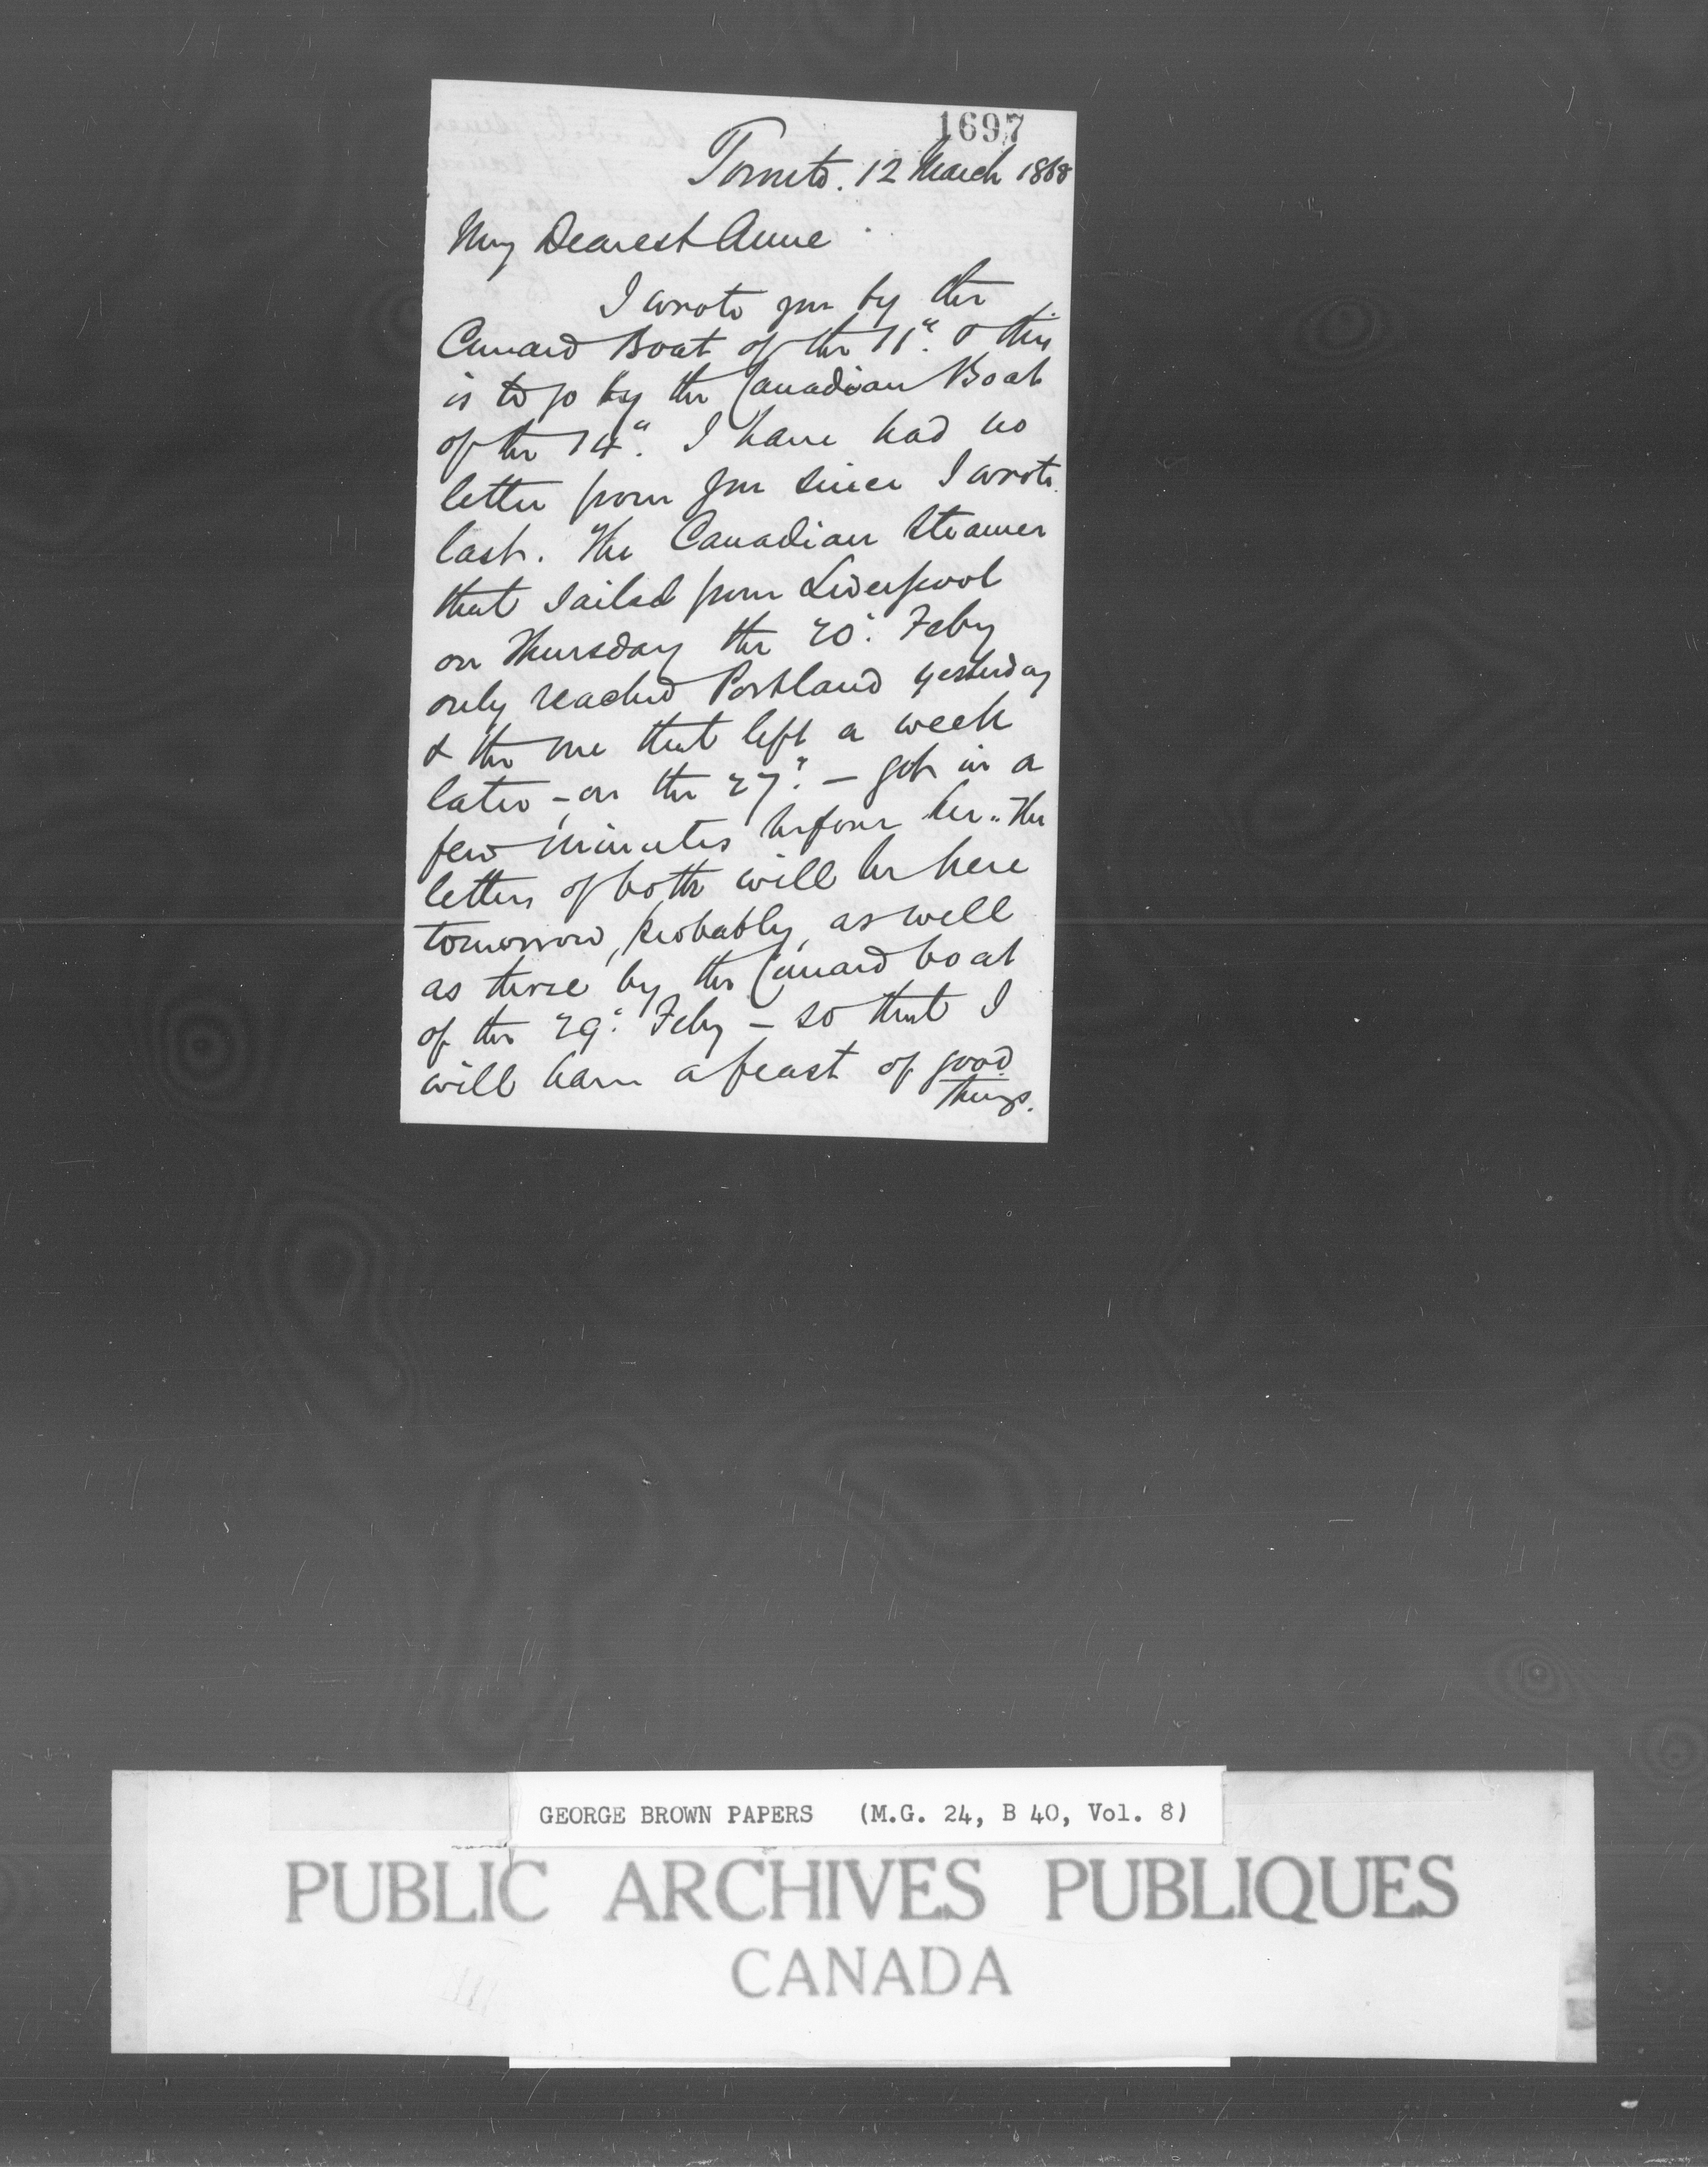 1697
Toronto. 12 March 1868
My Dearest Anne
I wrote you by the
Cunard Boat of the 11". & this
is to go by the Canadian Boat
of the 14". I have had no
letter from you since I wrote
last. The Canadian Steamer
that sailed from Liverpool
on Thursday the 20". Feby
only reached Portland yesterday
& the one that left a week
later - on the 27". - got in a
few minutes before her. The
letters of both will be here
tomorrow, probably, as well
as those by the Cunard boat
of the 29". Feby - so that I
will have a feast of good
things.
GEORGE BROWN PAPERS (M.G. 24, B 40, Vol. 8)
PUBLIC ARCHIVES PUBLIQUES
CANADA